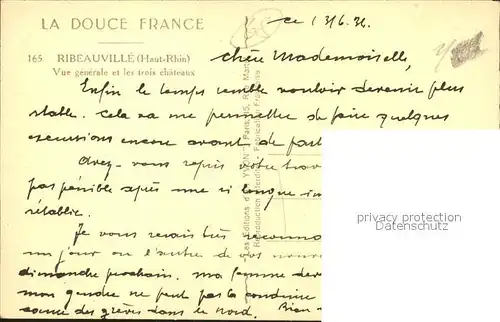 LA DOUCE FRANCE
ce 13/6.36.
165 RIBEAUVILLÉ (Haut-Rhin)
Vue générale et les trois châteaux
Chère Mademoiselle,
Enfin le temps semble vouloir devenir plus
stable. Cela va me permettre de faire quelques
excursions encore avant de
Avez-vous repris votre
pas pénible après une si longue
rétablie.
Je vous serais très
un jour ou l'autre de vos
dimanche prochain. ma femme
mon gendre ne peut pas la conduire
cause des grèves dans le Nord. Bien
Les Editions d'
YVON
Paris
Reproduction interdite
Fabrication Française
privacy protection
Datenschutz